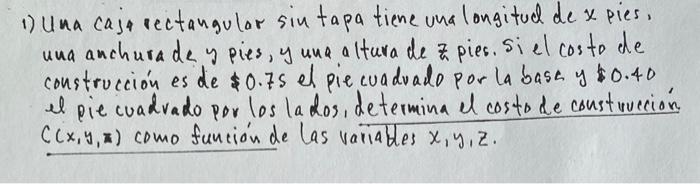 1) Una caja rectangular sin tapa tiene una longitud de x pies,
una anchura de y pies, y una altura de z pies. Si el costo de
construcción es de $0.75 el pie cuadrado por la base y $0.40
el pie cuadrado por los lados, determina el costo de construcción
C(x,y,z) como función de las variables x,y,z.